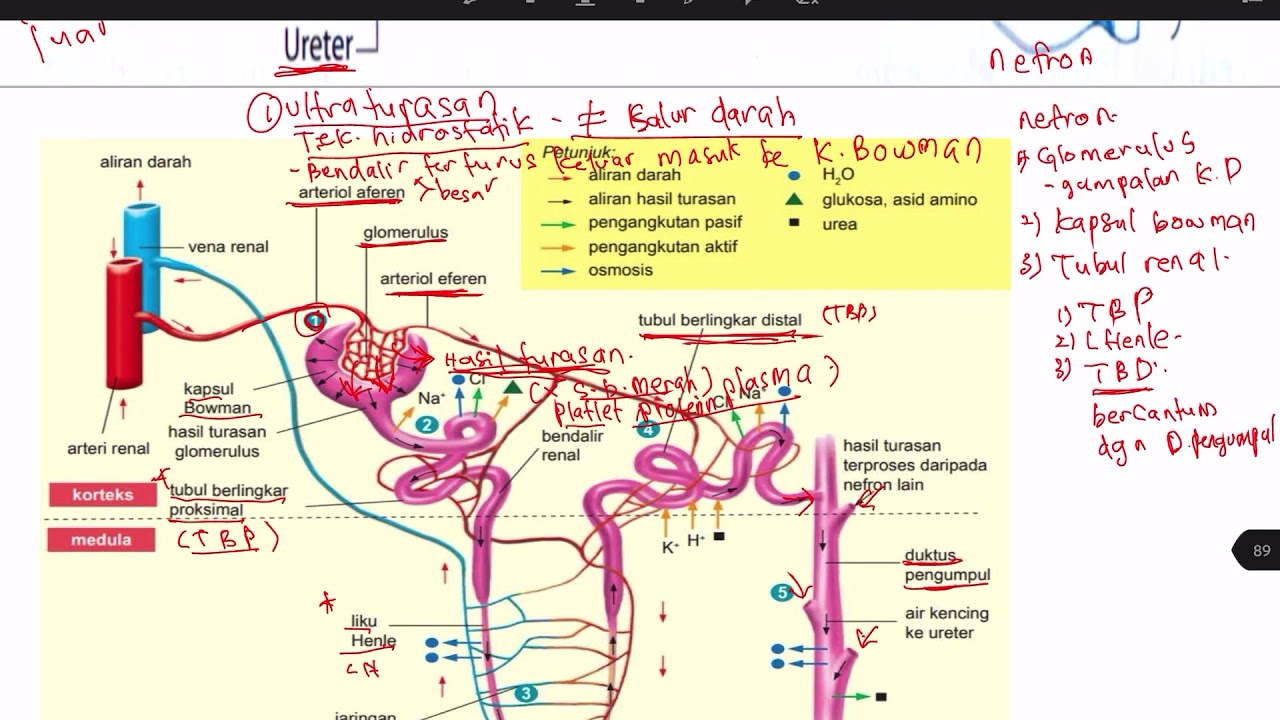 Ureter
nefron
① Ultraturasan
Tek. hidrostatik - ≠ salur darah
- Bendalir terturus keluar masuk ke K. Bowman
Petunjuk:
aliran darah
aliran hasil turasan
pengangkutan pasif
pengangkutan aktif
osmosis
H₂O
glukosa, asid amino
urea
nefron.
1) Glomerulus
- gumpalan K.D
2) Kapsul bowman
3) Tubul renal.
1) TBP
2) LHenle.
3) TBD.
bercantum
dgn D.pengumpul
aliran darah
arteriol aferen
besar
glomerulus
vena renal
arteriol eferen
1
tubul berlingkar distal
(TBD)
Hasil turasan.
(x s.d.merah) plasma :)
platlet protein
kapsul
Bowman
hasil turasan
glomerulus
arteri renal
Na⁺
Cl⁻
2
bendalir
renal
4
Cl⁻
Na⁺
hasil turasan
terproses daripada
nefron lain
korteks
tubul berlingkar
proksimal
(TBP)
medula
K⁺
H⁺
duktus
pengumpul
89
5
air kencing
ke ureter
liku
Henle
LH
3
jaringan